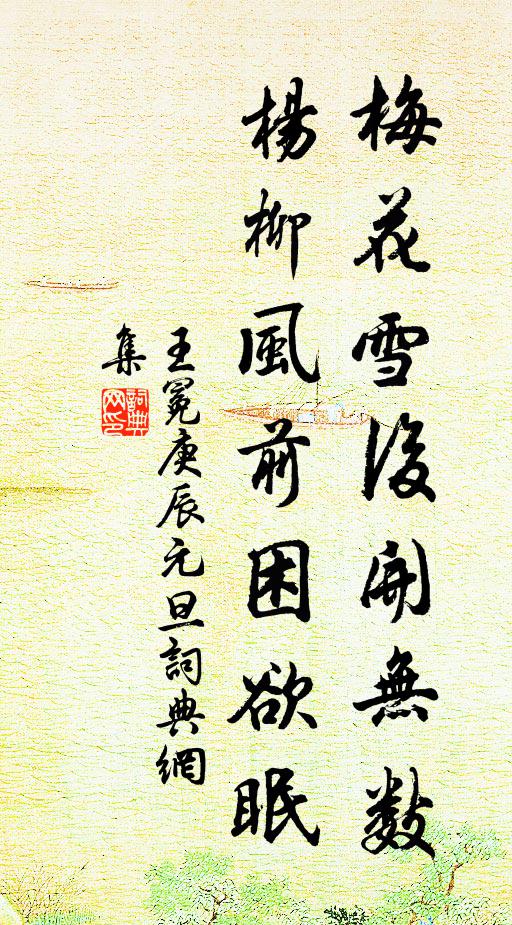 梅花雪後開無數
楊柳風前困欲眠
王冕庚辰元旦詞典網
集
詞典网印